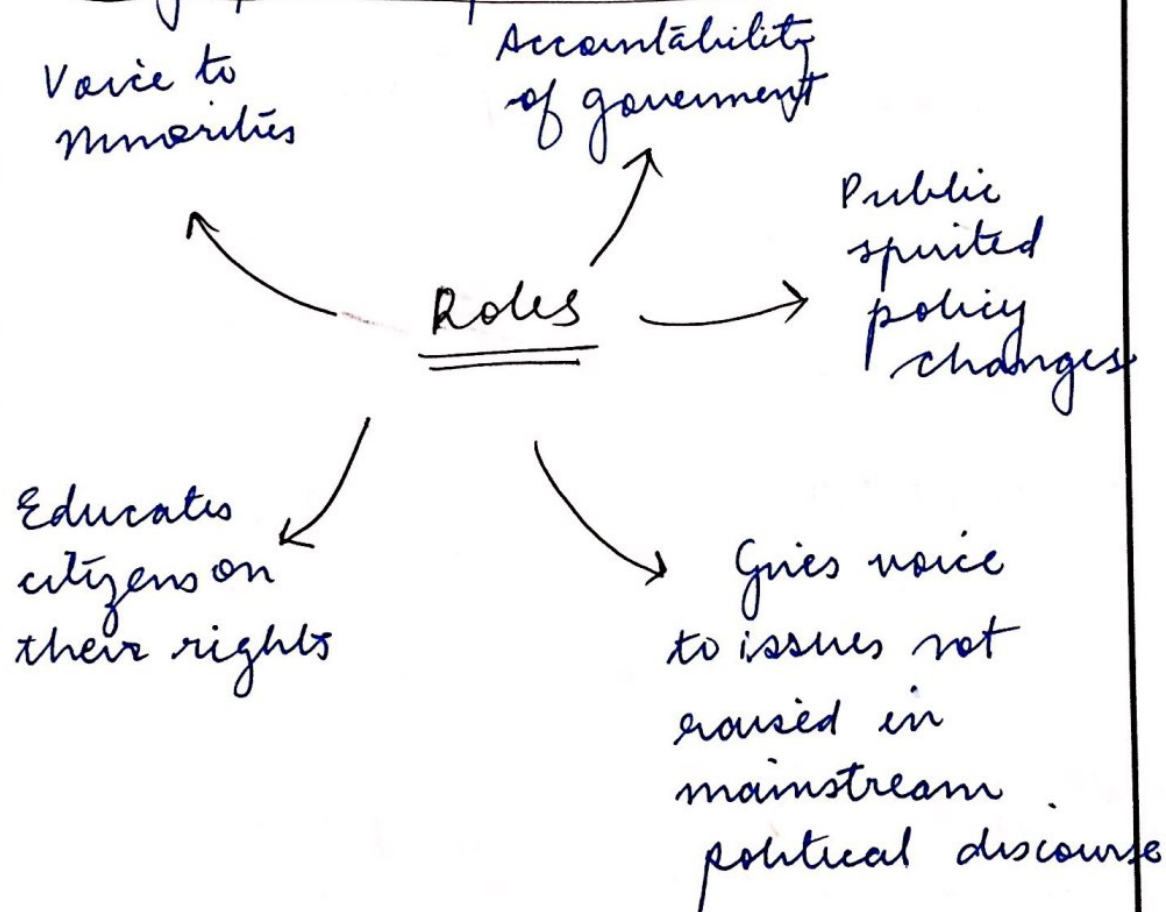 Voice to
Minorities
Accountability
of government
Public
spirited
policy
changes
Roles
Educates
citizens on
their rights
Gives voice
to issues not
raised in
mainstream
political discourse